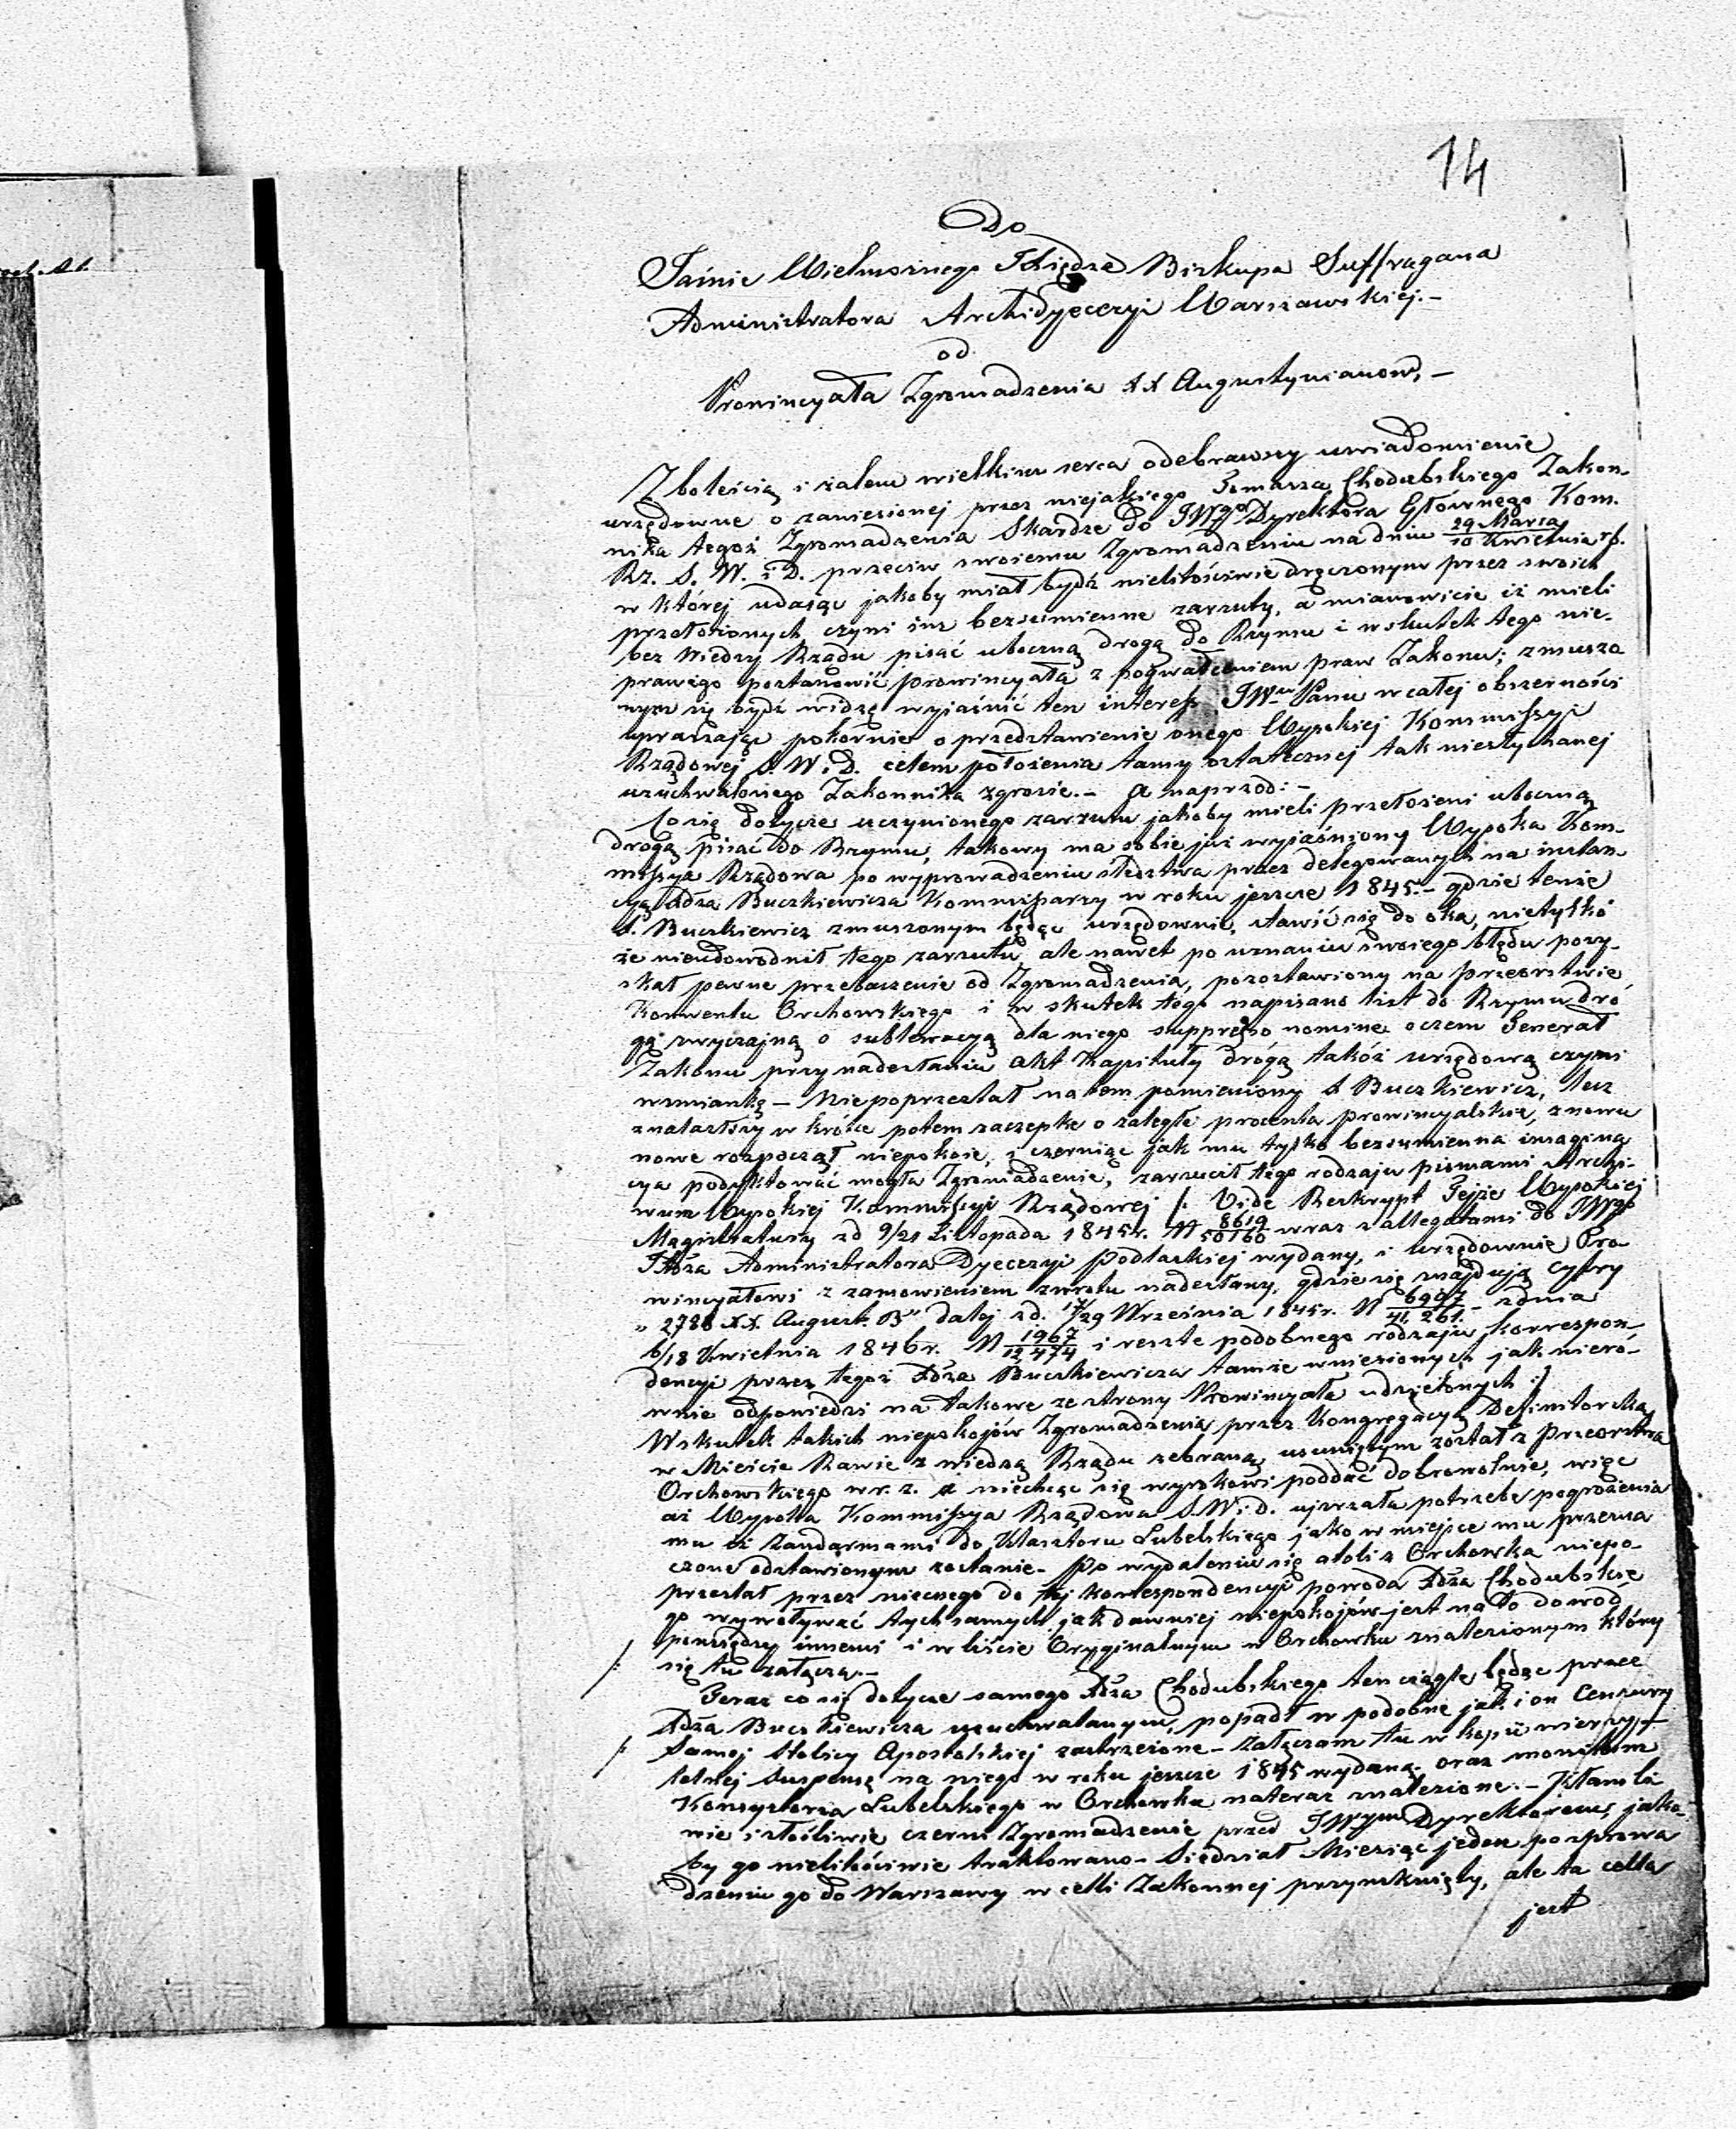 14
Do
Jaśnie Wielmożnego Xiędza Biskupa Suffragana
Administratora Archidyecezyi Warszawskiej.–
od
Prowincyała Zgromadzenia XX Augustynianow,–
Z boleścią i żalem wielkim serca odebrawszy uwiadomienie
urzędowne o zaniesionej przez niejakiego Tomasza Chodubskiego Zakon-
nika tegoż Zgromadzenia Skardze do JWgo Dyrektora Głownego Kom.
Rz. S. W. i D. przeciw swoiemu Zgromadzeniu na dniu 29 Marca/10 Kwietnia rb.
w której udając jakoby miał bydź nielitościwie dręczonym przez swoich
przełożonych czyni im bezsumienne zarzuty, a mianowicie iż mieli
bez wiedzy Rządu pisać uboczną drogą do Rzymu i wskutek tego nie-
prawego postanowić prowincyała z pogwałceniem praw Zakonu; zmuszo
nym się bydź widzę wyjaśnić ten interess JWu Panu w całej obszerności
upraszając pokornie o przedstawienie onego Wysokiej Kommissyi
Rządowej S. W. i D. celem położenia tamy ostatecznej tak niesłychanej
uzuchwalonego Zakonnika zgrozie.– a naprzod:–
Co się dotycze uczynionego zarzutu jakoby mieli przełożeni uboczną
drogą pisać do Rzymu, takowy ma sobie już wyjaśniony Wysoka Kom-
missya Rządowa po wyprowadzeniu śledztwa przez delegowanych na instan-
cyą Xdza Buczkiewicza Kommissarzy w roku jeszcze 1845.– gdzie tenże
X. Buczkiewicz zmuszonym będąc urzędownie, stawić się do oka, nietylko
że nieudowodnił tego zarzutu, ale nawet po uznaniu swoiego błędu pozy-
skał pewne przebaczenie od Zgromadzenia, pozostawiony na przeorstwie
Konwentu Orchowskiego i w skutek tego napisano list do Rzymu dro
gą zwyczajną o sublewacyą dla niego suppresso nomine o czem Generał
Zakonu przy nadesłaniu Akt Kapituły drógą takóż urzędową czyni
wzmiankę – Niepoprzestał na tem pomieniony X Buczkiewicz, lecz
znalazłszy w krótce potem zaczepkę o zaległe procenta prowincyalskie, znowu
nowe rozpoczął niepokoie, i czerniąc jak mu tylko bezsumienna imagina
cya podyktować mogła Zgromadzenie, zarzucił tego rodzaju pismami Archi-
wum Wysokiej Kommissyi Rządowej /: Vide Reskrypt Tejże Wysokiej
Magistratury zd 9/21 Listopada 1845r. N 8619/50160 wraz z allegatami do JWgo
Xdza Administratora Dyecezyi Podlaskiej wydany, i urzędownie Pro
wincyałowi z zamowieniem zwrotu nadesłany, gdzie się znajdują Cyfry
„ 2788 XX. August. B” dalej zd. 17/29 Września 1845r. N 6997/41,261.– z dnia
6/18 Kwietnia 1846r. N 1967/12,474 i reszte podobnego rodzaju korrespon-
dencyi przez tegoż Xdza Buczkiewicza tamże wniesionych jak niero-
wnie odpowiedzi na takowe ze strony Prowincyała udzielonych :/
Wskutek takich niepokojów Zgromadzenia przez Kongregacyą Definitorską
w Mieście Rawie z wiedzą Rządu zebraną usuniętym został z Przeorstwa
Orchowskiego w r. z. a niechcąc się wyrokowi poddać dobrowolnie, więc
aż Wysoka Kommissya Rządowa S. W. i D. ujrzała potrzebe pogrożenia
mu iż Zandarmami do Klasztoru Lubelskiego jako w miejsce mu przezna
czone odstawionym zostanie.– Po wydaleniu się atoli z Orchowka niepo-
przestał przez niecnego do tej korrespondencyi powoda Xdza Chodubskie
go wywoływać tych samych jak dawniej niepokojów – jest na to dowód
pomiędzy innemi i w liście Oryginalnym w Orchowku znalezionym który
się tu załącza.–
Teraz co się dotycze samego Xdza Chodubskiego ten ciągle będąc przez
Xdza Buczkiewicza uzuchwalanym, popadł w podobne jak i on Cenzury
Samej Stolicy Apostolskiej zastrzeżone – Załączam tu w kopii wierzy-
telnej Suspensę na niego w roku jeszcze 1845 wydaną oraz monitum
Konsystorza Lubelskiego w Orchowku nateraz znalezione.– Kłamli
wie i złośliwie czerni Zgromadzenie przed JWym Dyrektorem, jako-
by go nielitościwie traktowano – Siedział Miesiąc jeden po sprowa
dzeniu go do Warszawy w celli Zakonnej przymknięty, ale ta cella
jest